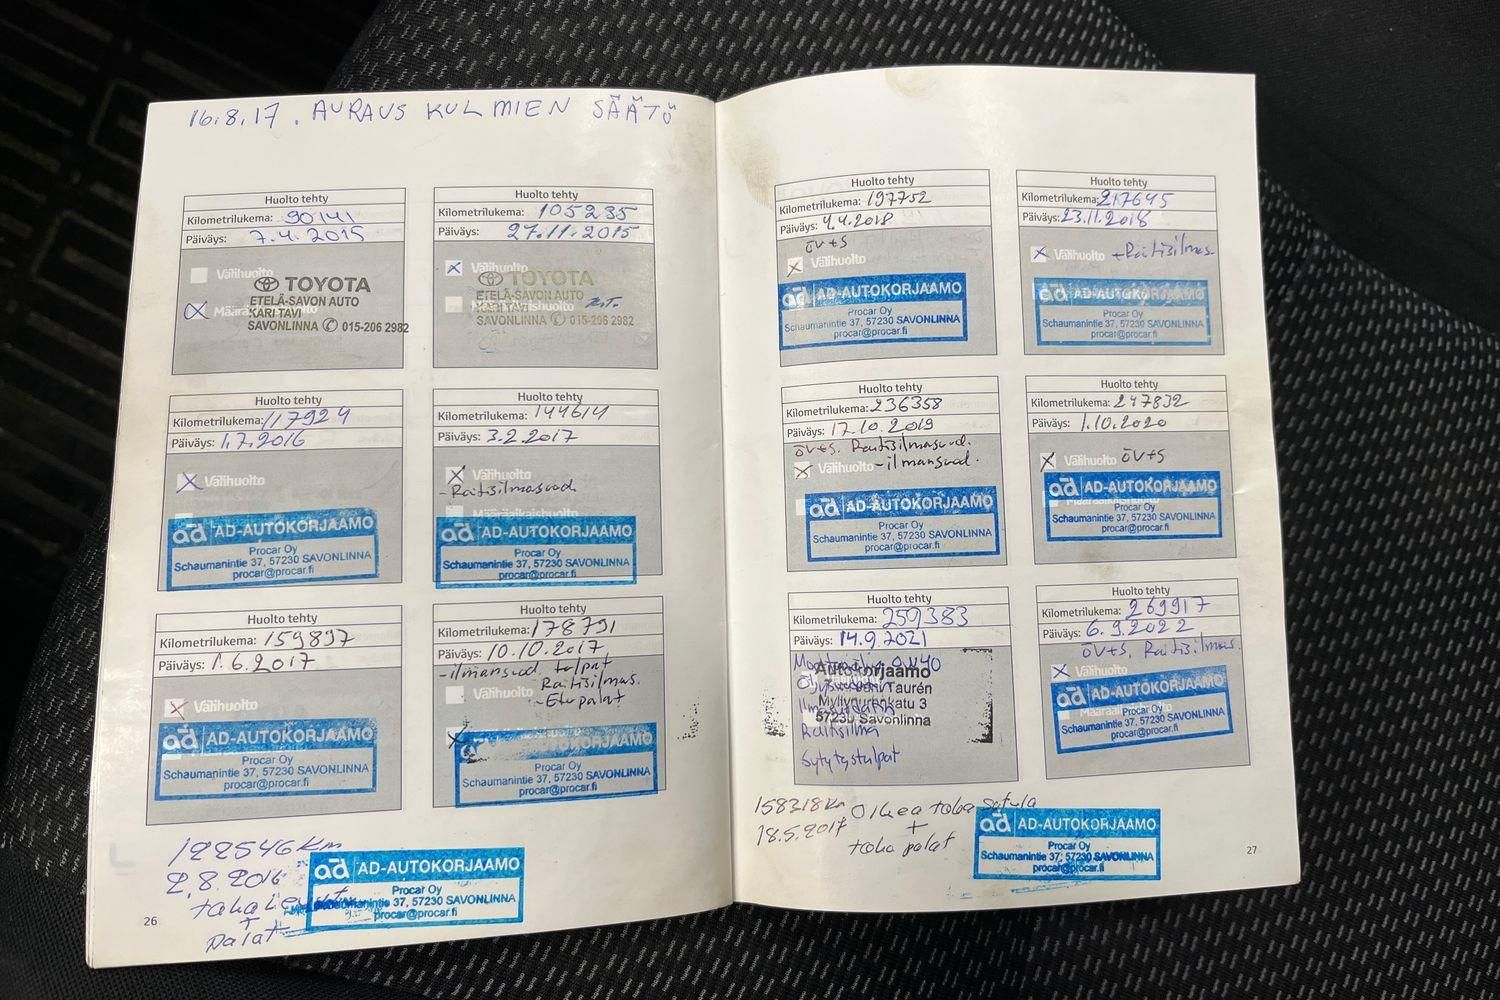 16.8.17. AURAUS KULMIEN SÄÄTÖ
Huolto tehty
Kilometrilukema: 90141
Päiväys: 7.4.2015
Välihuolto
TOYOTA
ETELÄ-SAVON AUTO
KARI TAVI
SAVONLINNA 015-206 2982
Huolto tehty
Kilometrilukema: 105235
Päiväys: 27.11.2015
Välihuolto
TOYOTA
ETELÄ-SAVON AUTO
KARI TAVI
SAVONLINNA 015-206 2982
Huolto tehty
Kilometrilukema: 117924
Päiväys: 1.7.2016
Välihuolto
ad AD-AUTOKORJAAMO
Procar Oy
Schaumanintie 37, 57230 SAVONLINNA
procar@procar.fi
Huolto tehty
Kilometrilukema: 144614
Päiväys: 3.2.2017
Välihuolto
-Raitisilmasuod.
Määräaikaishuolto
ad AD-AUTOKORJAAMO
Procar Oy
Schaumanintie 37, 57230 SAVONLINNA
procar@procar.fi
Huolto tehty
Kilometrilukema: 159897
Päiväys: 1.6.2017
Välihuolto
ad AD-AUTOKORJAAMO
Procar Oy
Schaumanintie 37, 57230 SAVONLINNA
procar@procar.fi
Huolto tehty
Kilometrilukema: 178791
Päiväys: 10.10.2017
-ilmansuod. tulpat
Raitisilmas.
Välihuolto -Etupalat
AUTOKORJAAMO
Procar Oy
Schaumanintie 37, 57230 SAVONLINNA
procar@procar.fi
122546 km
2.8.2016
+
palat
ad AD-AUTOKORJAAMO
Procar Oy
Schaumanintie 37, 57230 SAVONLINNA
procar@procar.fi
26
Huolto tehty
Kilometrilukema: 197752
Päiväys: 4.4.2018
öv+s
Välihuolto
ad AD-AUTOKORJAAMO
Procar Oy
Schaumanintie 37, 57230 SAVONLINNA
procar@procar.fi
Huolto tehty
Kilometrilukema: 217645
Päiväys: 23.11.2018
Välihuolto +Raitisilmas.
ad AD-AUTOKORJAAMO
Procar Oy
Schaumanintie 37, 57230 SAVONLINNA
procar@procar.fi
Huolto tehty
Kilometrilukema: 236358
Päiväys: 17.10.2019
öv+s. Raitisilmasuod.
Välihuolto -ilmansuod.
ad AD-AUTOKORJAAMO
Procar Oy
Schaumanintie 37, 57230 SAVONLINNA
procar@procar.fi
Huolto tehty
Kilometrilukema: 247832
Päiväys: 1.10.2020
Välihuolto öv+s
ad AD-AUTOKORJAAMO
Procar Oy
Schaumanintie 37, 57230 SAVONLINNA
procar@procar.fi
Huolto tehty
Kilometrilukema: 259383
Päiväys: 14.9.2021
Autokorjaamo
Taurén
Myllynurkankatu 3
57230 Savonlinna
Raitisilma
Sytytystulpat
Huolto tehty
Kilometrilukema: 269917
Päiväys: 6.9.2022
öv+s, Raitisilmas.
Välihuolto
ad AD-AUTOKORJAAMO
Procar Oy
Schaumanintie 37, 57230 SAVONLINNA
procar@procar.fi
158318km Oikea taka satula
18.5.2017 +
taka palat
ad AD-AUTOKORJAAMO
Procar Oy
Schaumanintie 37, 57230 SAVONLINNA
procar@procar.fi
27